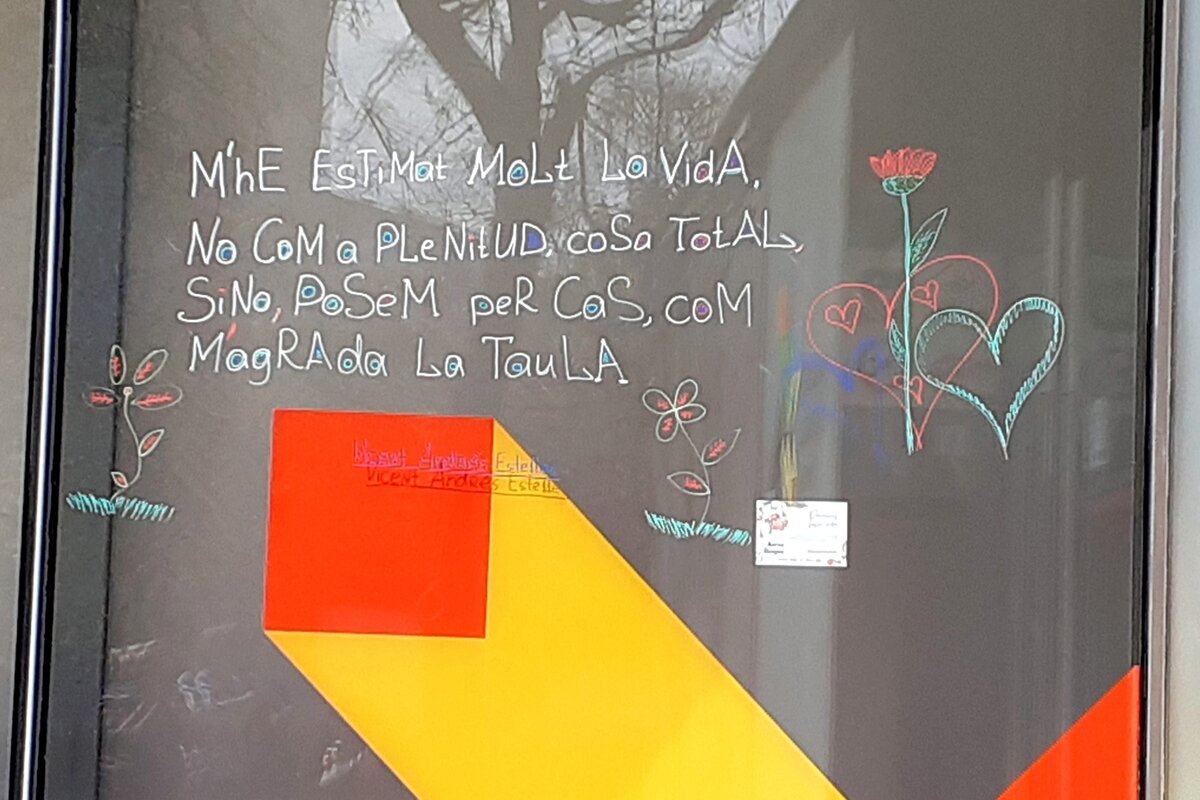 M'hE EsTiMat MoLt La VidA,
No CoM a PLeNitUD, coSa TotAL,
SiNo, PoSeM peR CaS, coM
M'agRAda La TauLA
Vicent Andrés Estellés